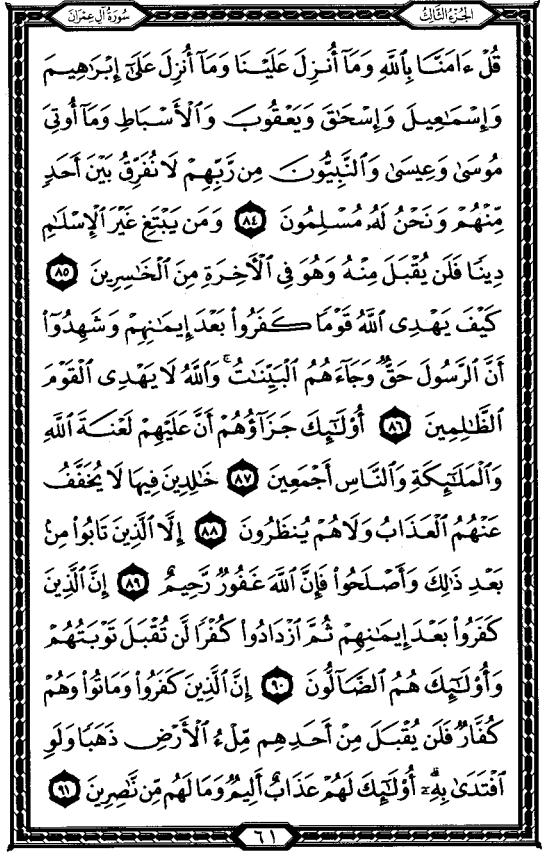 الجزء الثالث
سورة آل عمران
قُلْ ءَامَنَّا بِٱللَّهِ وَمَآ أُنزِلَ عَلَيْنَا وَمَآ أُنزِلَ عَلَىٰٓ إِبْرَٰهِيمَ
وَإِسْمَٰعِيلَ وَإِسْحَٰقَ وَيَعْقُوبَ وَٱلْأَسْبَاطِ وَمَآ أُوتِيَ
مُوسَىٰ وَعِيسَىٰ وَٱلنَّبِيُّونَ مِن رَّبِّهِمْ لَا نُفَرِّقُ بَيْنَ أَحَدٍ
مِّنْهُمْ وَنَحْنُ لَهُۥ مُسْلِمُونَ ٨٤ وَمَن يَبْتَغِ غَيْرَ ٱلْإِسْلَٰمِ
دِينًا فَلَن يُقْبَلَ مِنْهُ وَهُوَ فِي ٱلْأَخِرَةِ مِنَ ٱلْخَٰسِرِينَ ٨٥
كَيْفَ يَهْدِي ٱللَّهُ قَوْمًا كَفَرُوا۟ بَعْدَ إِيمَٰنِهِمْ وَشَهِدُوٓا۟
أَنَّ ٱلرَّسُولَ حَقٌّ وَجَآءَهُمُ ٱلْبَيِّنَٰتُ ۚ وَٱللَّهُ لَا يَهْدِي ٱلْقَوْمَ
ٱلظَّٰلِمِينَ ٨٦ أُو۟لَٰٓئِكَ جَزَآؤُهُمْ أَنَّ عَلَيْهِمْ لَعْنَةَ ٱللَّهِ
وَٱلْمَلَٰٓئِكَةِ وَٱلنَّاسِ أَجْمَعِينَ ٨٧ خَٰلِدِينَ فِيهَا لَا يُخَفَّفُ
عَنْهُمُ ٱلْعَذَابُ وَلَا هُمْ يُنظَرُونَ ٨٨ إِلَّا ٱلَّذِينَ تَابُوا۟ مِنۢ
بَعْدِ ذَٰلِكَ وَأَصْلَحُوا۟ فَإِنَّ ٱللَّهَ غَفُورٌ رَّحِيمٌ ٨٩ إِنَّ ٱلَّذِينَ
كَفَرُوا۟ بَعْدَ إِيمَٰنِهِمْ ثُمَّ ٱزْدَادُوا۟ كُفْرًا لَّن تُقْبَلَ تَوْبَتُهُمْ
وَأُو۟لَٰٓئِكَ هُمُ ٱلضَّآلُّونَ ٩٠ إِنَّ ٱلَّذِينَ كَفَرُوا۟ وَمَاتُوا۟ وَهُمْ
كُفَّارٌ فَلَن يُقْبَلَ مِنْ أَحَدِهِم مِّلْءُ ٱلْأَرْضِ ذَهَبًا وَلَوِ
ٱفْتَدَىٰ بِهِۦٓ ۗ أُو۟لَٰٓئِكَ لَهُمْ عَذَابٌ أَلِيمٌ وَمَا لَهُم مِّن نَّٰصِرِينَ ٩١
٦١